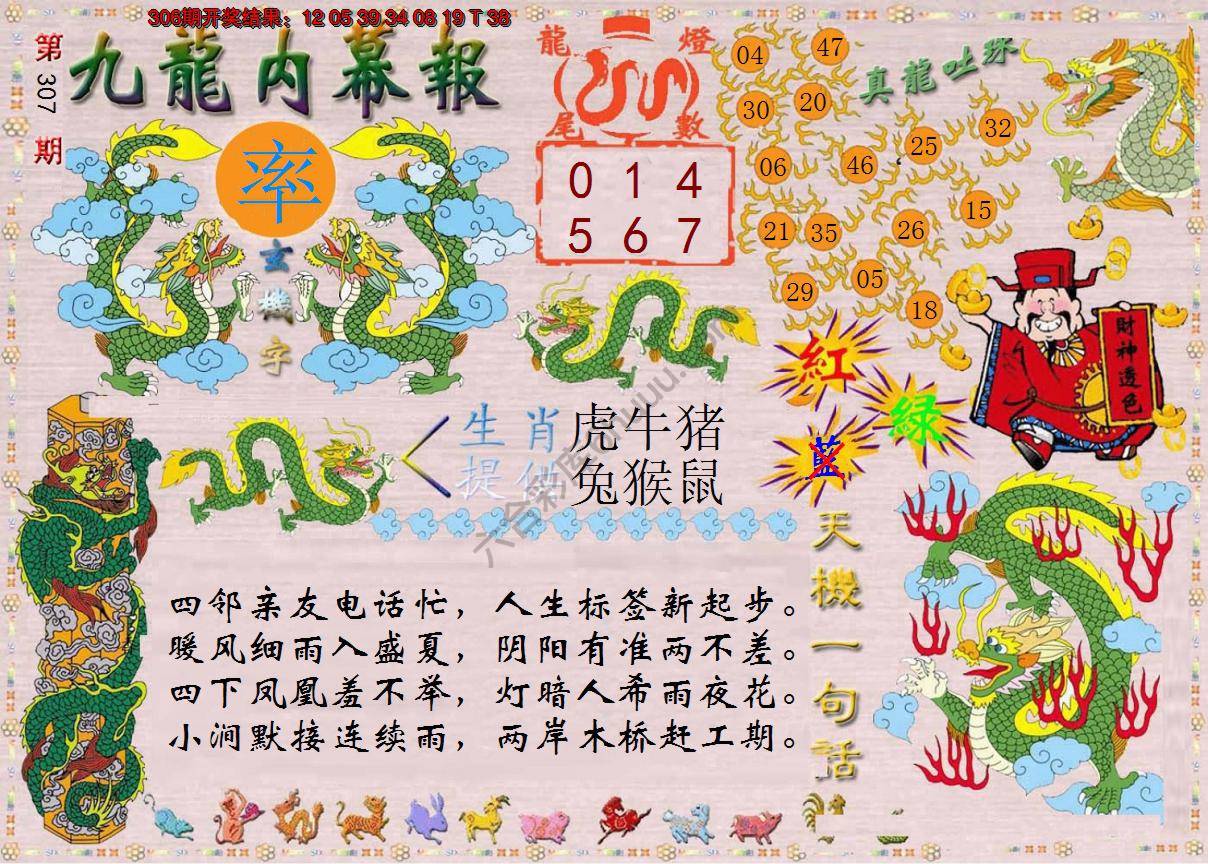 306期开奖结果：12 05 39 34 08 19 T 38
第307期
九龍内幕報
率
玄機字
龍燈
尾數
0 1 4
5 6 7
真龍吐珠
04 47
30 20
06 46 25 32
21 35 26 15
29 05 18
紅
綠
藍
財神透色
生肖
提供
虎牛猪
兔猴鼠
四邻亲友电话忙，人生标签新起步。
暖风细雨入盛夏，阴阳有准两不差。
四下凤凰羞不举，灯暗人希雨夜花。
小涧默接连续雨，两岸木桥赶工期。
天機一句話